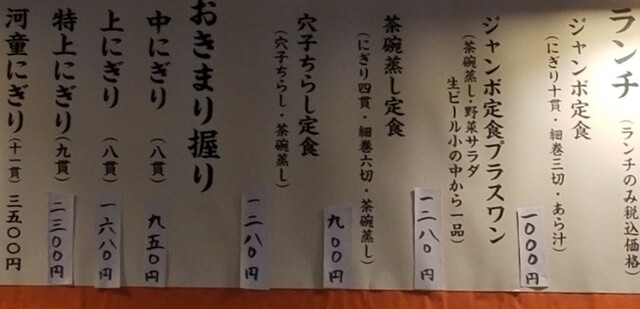 ランチ(ランチのみ税込価格)
ジャンボ定食
(にぎり十貫・細巻三切・あら汁)
一〇〇〇円
ジャンボ定食プラスワン
(茶碗蒸し・野菜サラダ
生ビール小の中から一品)
一二八〇円
茶碗蒸し定食
(にぎり四貫・細巻六切・茶碗蒸し)
九〇〇円
穴子ちらし定食
(穴子ちらし・茶碗蒸し)
一二八〇円
おきまり握り
中にぎり(八貫)
九五〇円
上にぎり(八貫)
一六八〇円
特上にぎり(九貫)
二三〇〇円
河童にぎり(十一貫)三五〇〇円